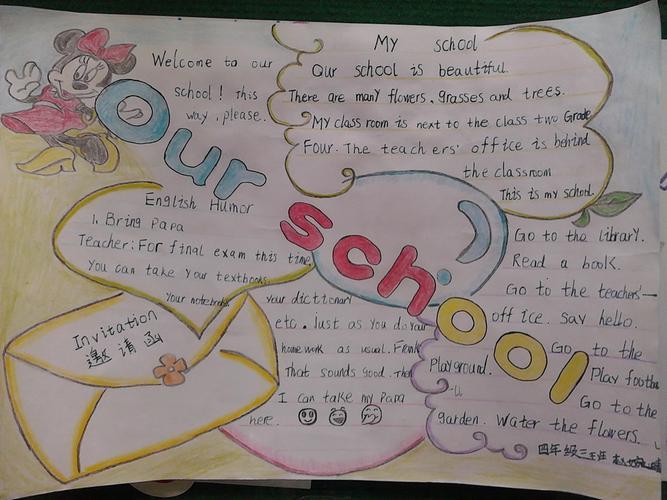 Welcome to our
school! This
way, please.
Our school
My school
Our school is beautiful.
There are many flowers, grasses and trees.
My class room is next to the class two Grade
Four. The teachers' office is behind
the classroom
This is my school.
English Humor
1. Bring Papa
Teacher: For final exam this time,
You can take your textbooks,
your notebooks,
your dictionary
etc. Just as you do your
homework as usual. Frank
That sounds good. Then
I can take my Papa
here.
Invitation
邀请函
Go to the library.
Read a book.
Go to the teachers'
office. Say hello.
Go to the
Playground.
Play footba
Go to the
garden. Water the flowers.
四年级三班